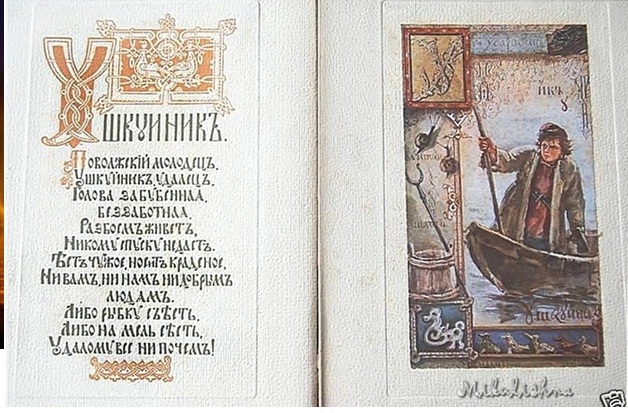 УШКУЙНИКЪ.
Поволжскій молодецъ,
Ушкуйникъ, удалецъ.
Голова забубенная,
беззаботная.
Разбоемъ живетъ,
Никому спуску недастъ.
Ѣстъ чужое, носитъ краденое,
Ни вамъ, ни намъ, ни добрымъ
людямъ.
Либо рыбку съѣсть,
Либо на мель сѣсть,
Удалому все ни почемъ!
Ушкуйник
Mikolishna